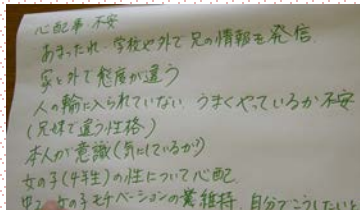 心配事 不安
あまったれ、学校や外で兄の情報を発信
家と外で態度が違う
人の輪に入られていない うまくやっているか不安
(兄妹で違う性格)
本人が意識(気にしているか)
女の子(4年生)の性について心配
中2 女の子モチベーションの維持、自分でこうしたいと